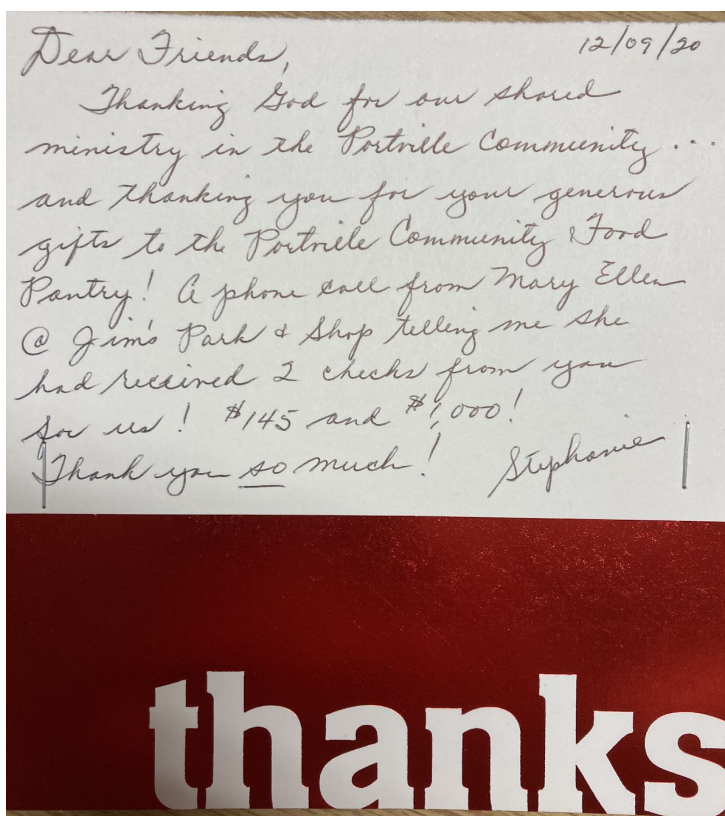 Dear Friends, 12/09/20
Thanking God for our shared
ministry in the Portville Community ...
and thanking you for your generous
gifts to the Portville Community Food
Pantry! A phone call from Mary Ellen
@ Jim's Park & Shop telling me she
had received 2 checks from you
for us! $145 and $1,000!
Thank you so much! Stephanie
thanks